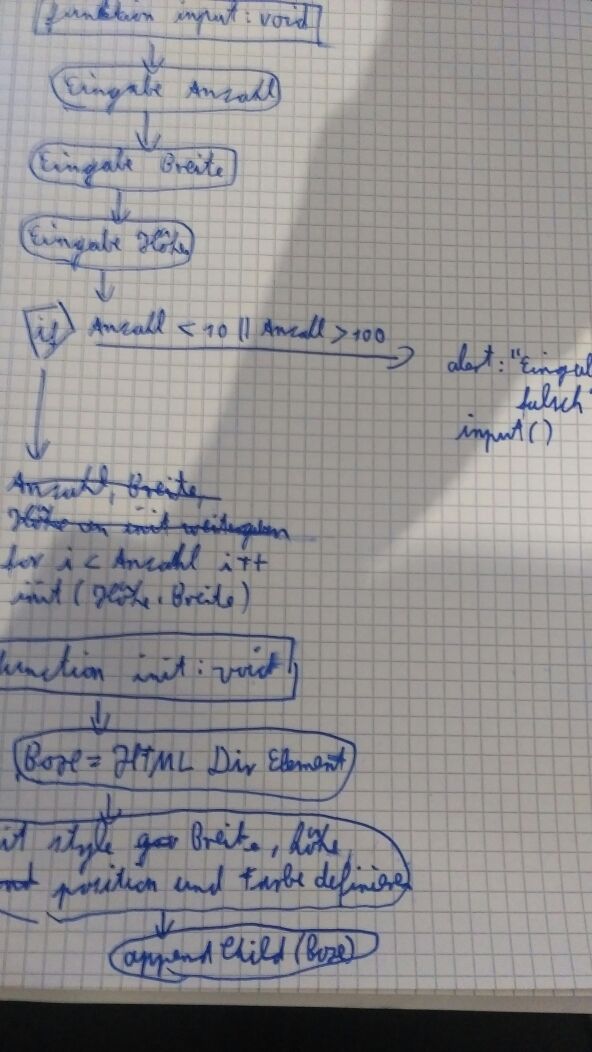 function input : void
Eingabe Anzahl
Eingabe Breite
Eingabe Höhe
if Anzahl < 10 || Anzahl > 100
alert : "Eingabe
falsch"
input ()
Anzahl, Breite,
Höhe an init weitergeben
for i < Anzahl i++
init (Höhe, Breite)
function init : void
Boxe = HTML Div Element
it style Breite, höhe,
position und Farbe definieren
appendChild (Boxe)